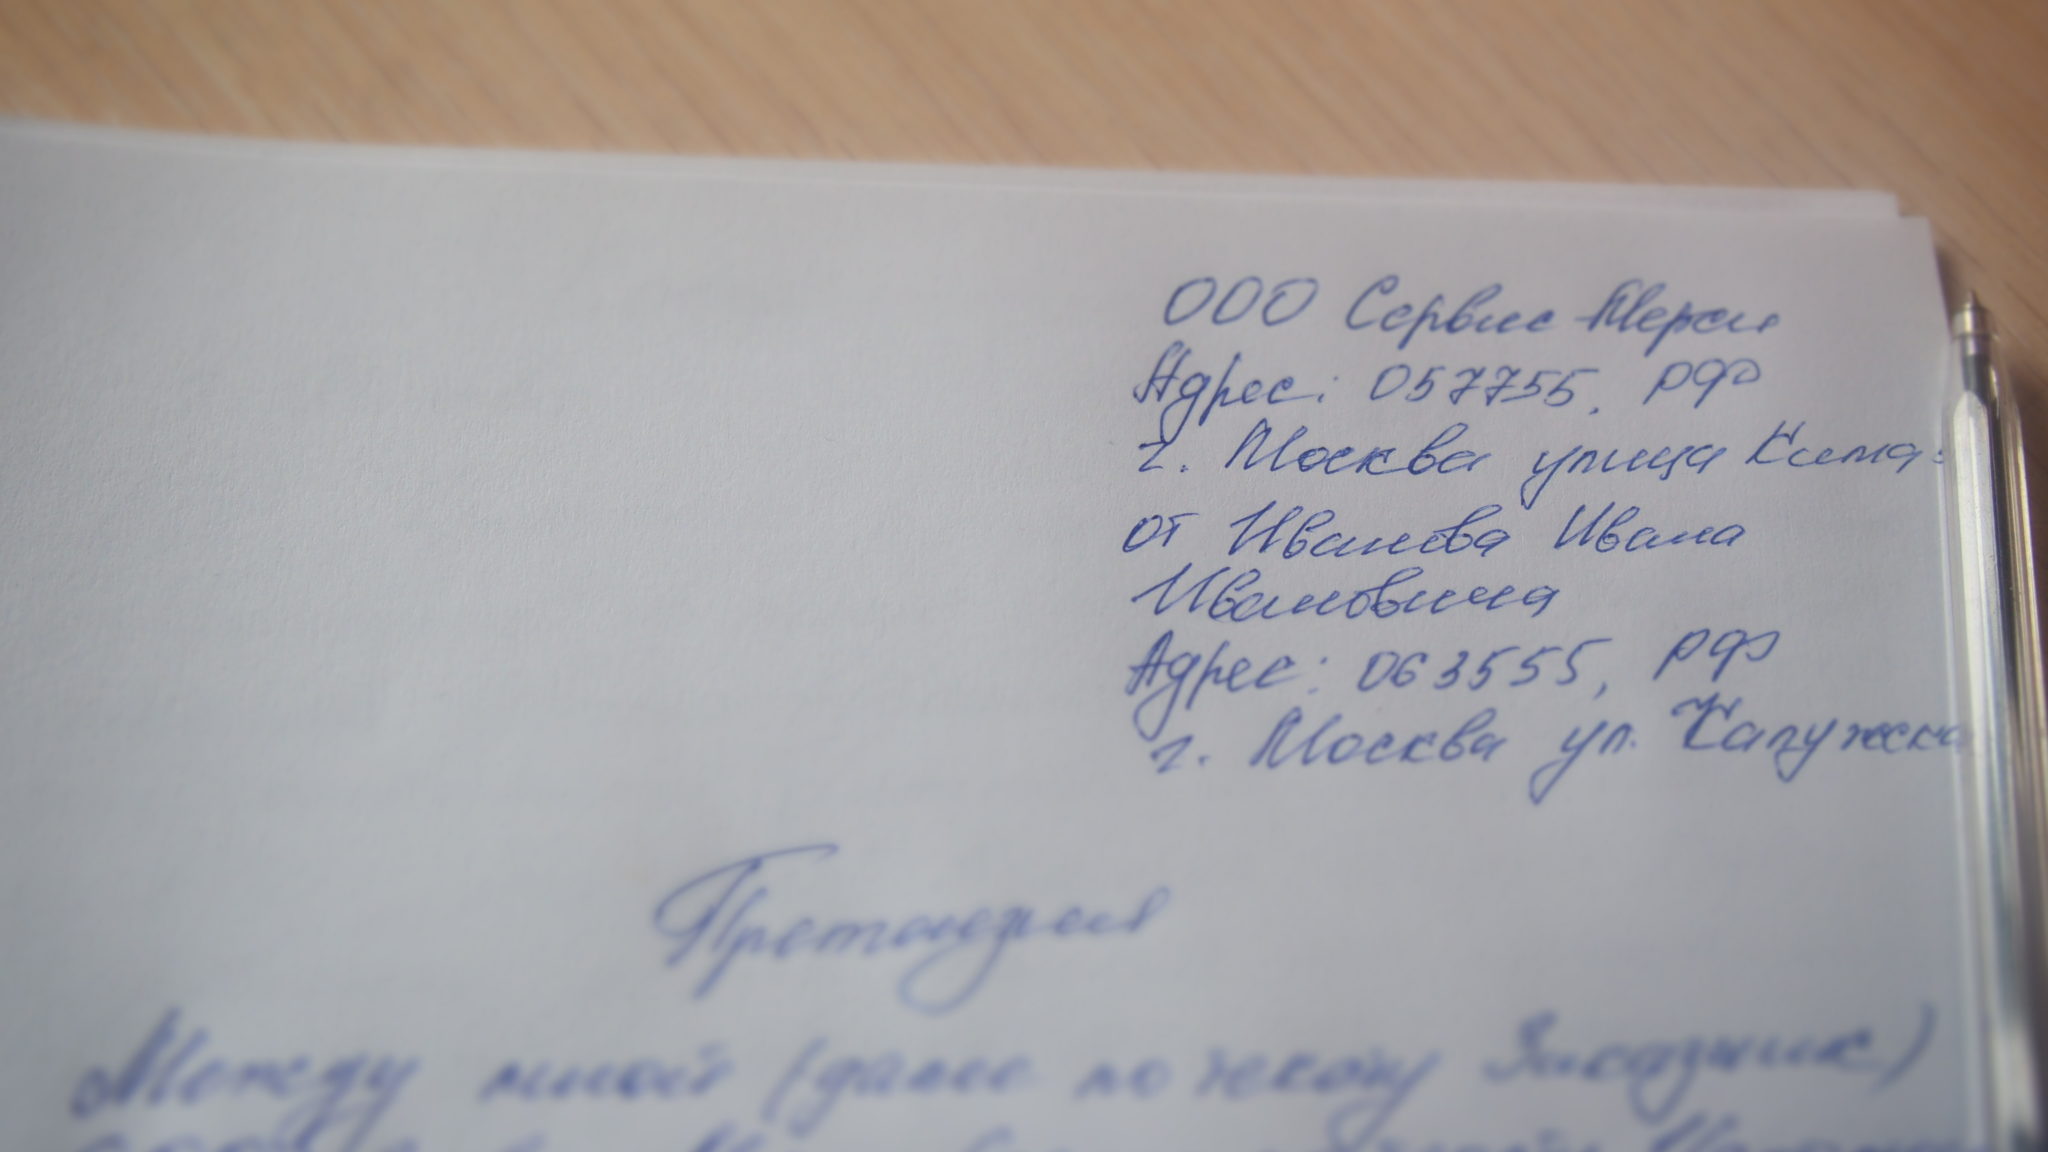 ООО Сервис-Мерси
Адрес: 057755, РФ
г. Москва улица Кима
от Иванова Ивана
Ивановича
Адрес: 063555, РФ
г. Москва ул. Калужска
Претензия
Между мной (далее по тексту Заказчик)